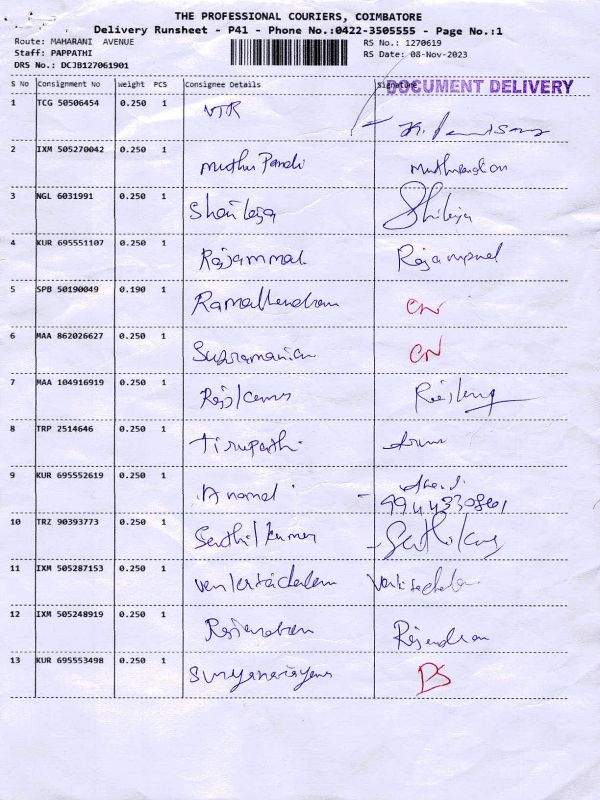 THE PROFESSIONAL COURIERS, COIMBATORE
Delivery Runsheet - P41 - Phone No.:0422-3505555 - Page No.:1
Route: MAHARANI AVENUE RS No.: 1270619
Staff: PAPPATHI RS Date: 08-Nov-2023
DRS No.: DCJB127061901
S No Consignment No Weight PCS Consignee Details Signature
DOCUMENT DELIVERY
1 TCG 50506454 0.250 1
2 IXM 505270042 0.250 1 Muthu Pandi
3 NGL 6031991 0.250 1
4 KUR 695551107 0.250 1 Rajammal
5 SPB 50190049 0.190 1 CN
6 MAA 862026627 0.250 1 CN
7 MAA 104916919 0.250 1
8 TRP 2514646 0.250 1 Tirupathi
9 KUR 695552619 0.250 1
10 TRZ 90393773 0.250 1 Senthilkumar
11 IXM 505287153 0.250 1 Venkatachalam
12 IXM 505248919 0.250 1 Rajendran Rajendran
13 KUR 695553498 0.250 1